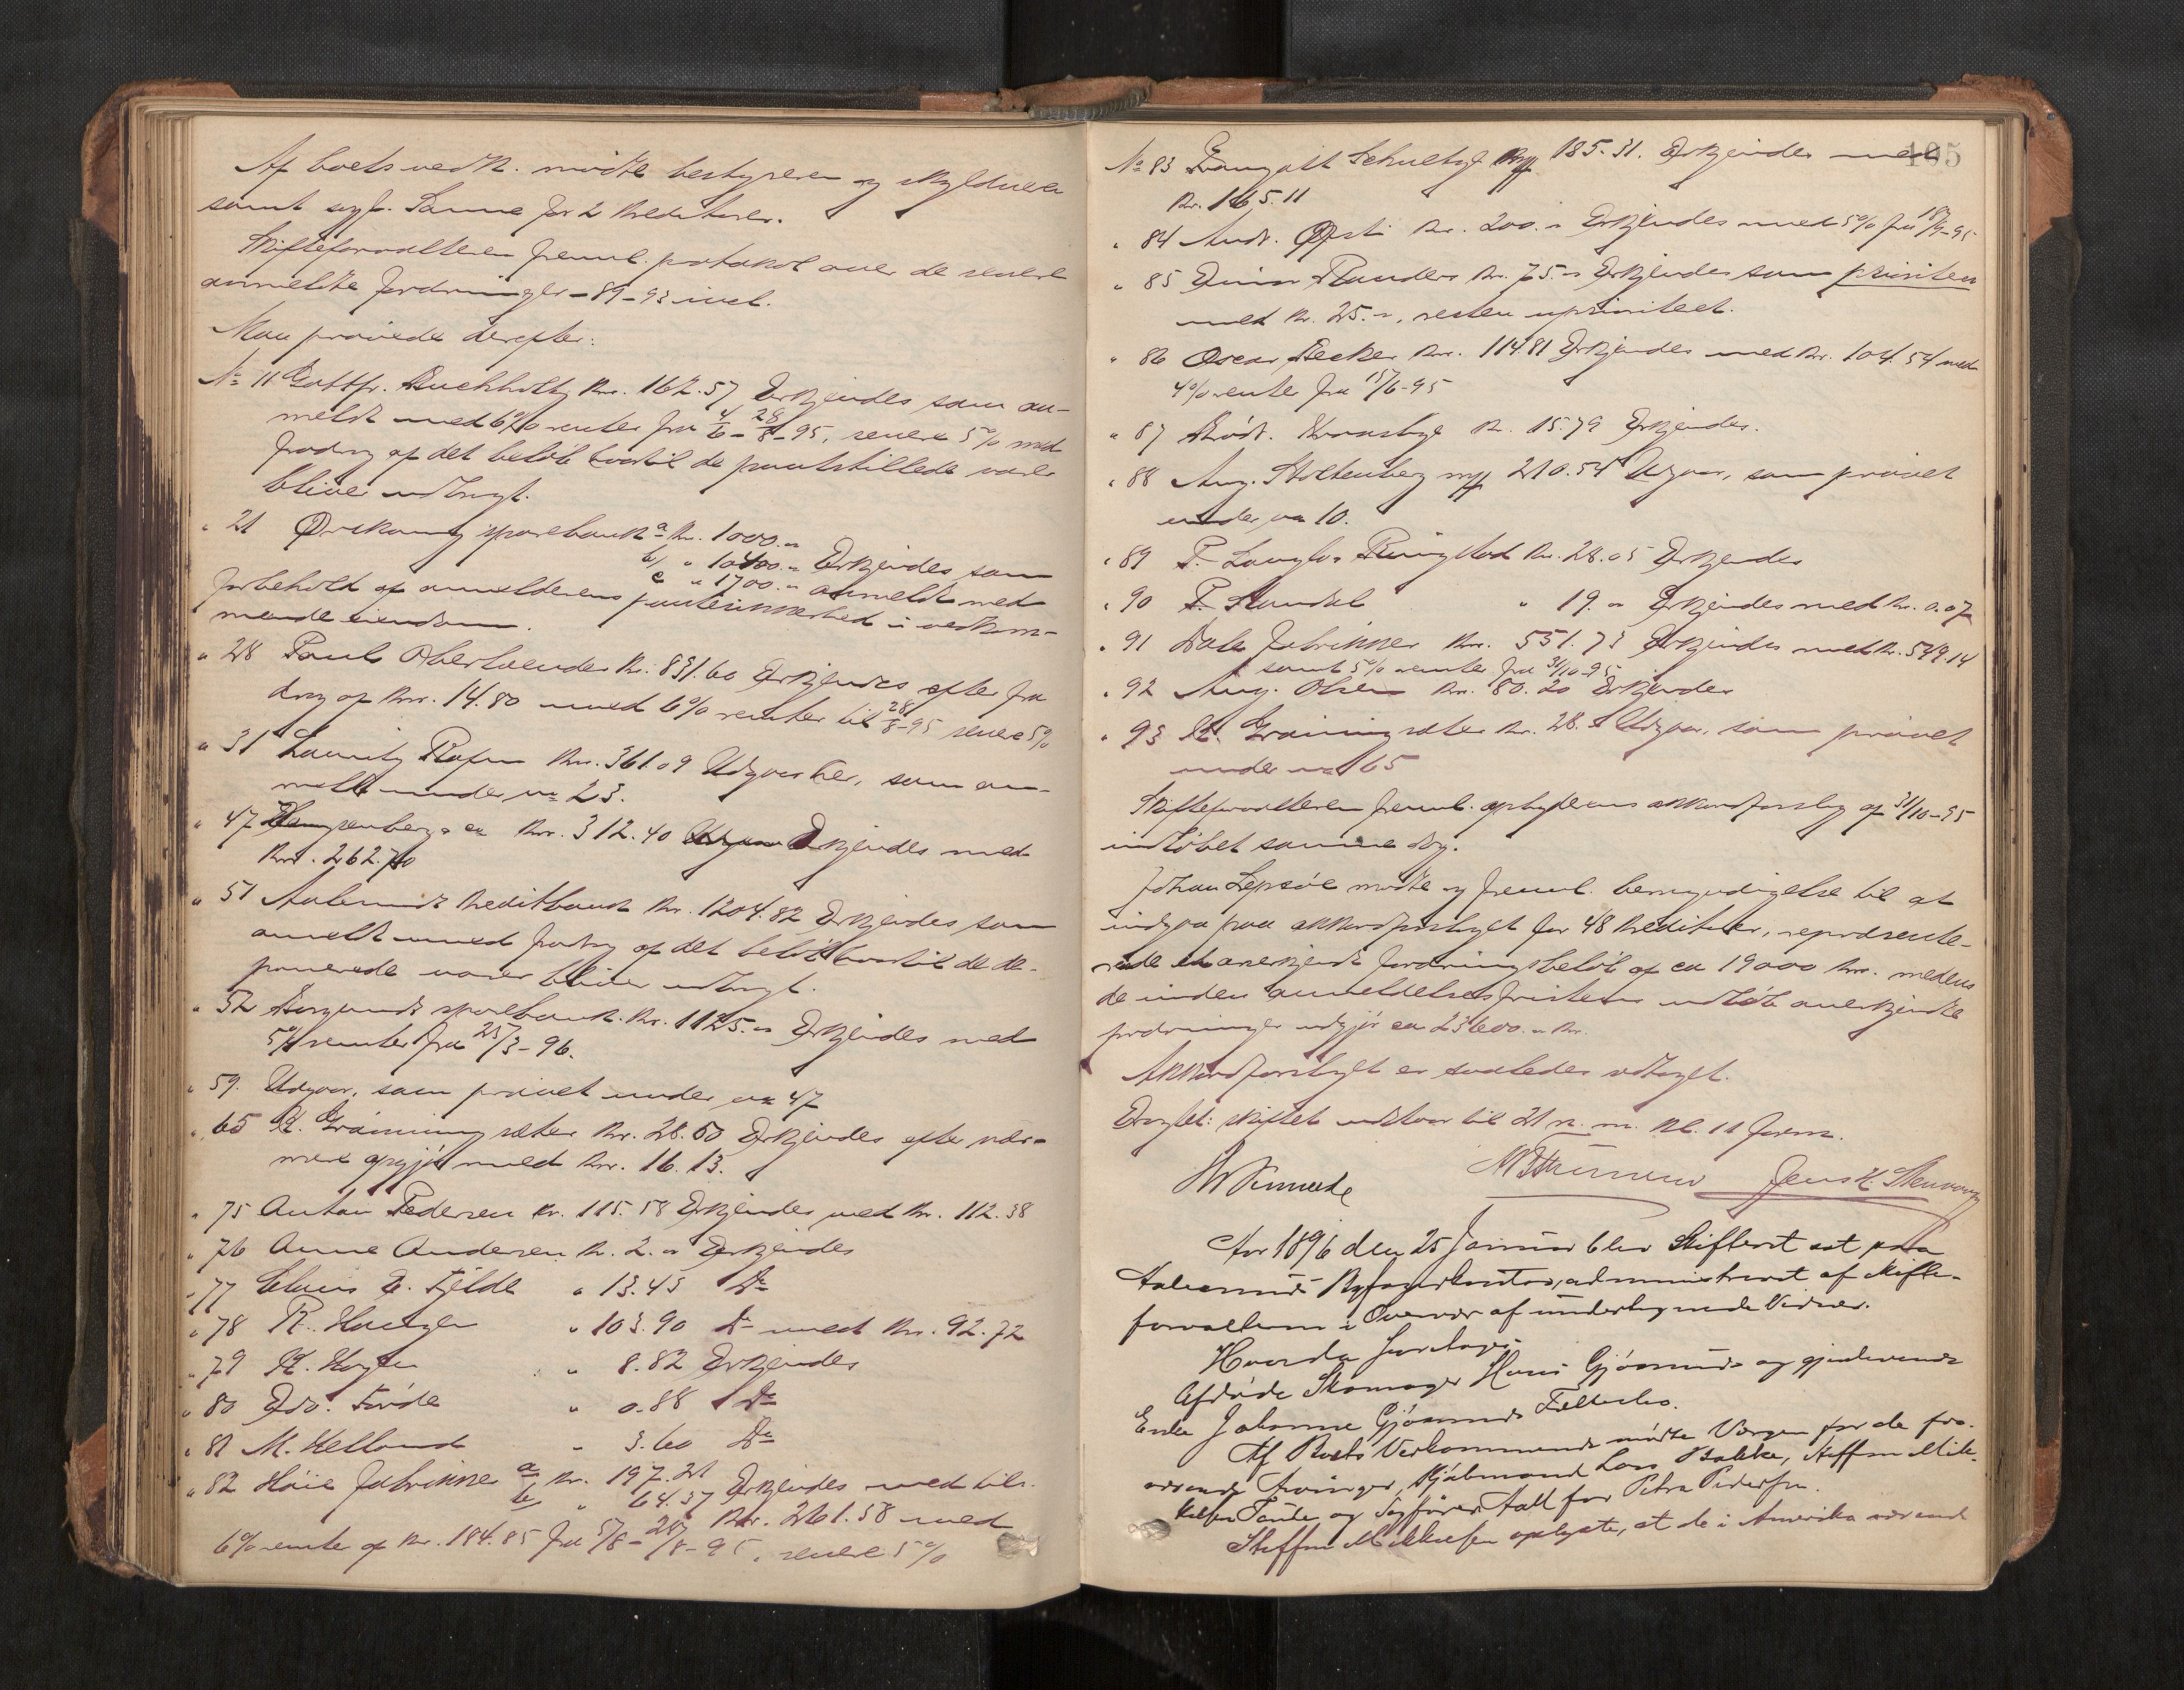 Af boets vedk. mødte bestyreren og skyldneren
samt sagf. Sanne for 2 kreditorer.
Skifteforvalteren freml. protokol over de senere
anmeldte fordringer - 89-93 incl.
Man prøvede derefter:
No 11 Gottfr. Buchholtz Kr. 162.57 Erkjendes som an-
meldt med 6% renter fra 4/6 - 28/8 - 95, senere 5% med
fradrag af det beløb hvortil de pantstillede varer
bliver udbragt.
" 21 Ørskoug sparebank a Kr. 1000.-
b/ " 10400.- Erkjendes som
c " 1700.- anmeldt med
forbehold af anmelderens pantesikkerhed i vedkom-
mende eiendom.
" 28 Paul Oberlaender Kr. 831.60 Erkjendes efter fra
drag af Kr. 14.80 med 6% renter til 28/8-95 senere 5%
" 31 Lauritz Rafn Kr. 361.09 Udgaar her, som an-
meldt under no 23.
" 47 & co Kr. 312.40 Erkjendes med
Kr. 262.70
" 51 Aalesunds Kreditbank Kr. 1204.82 Erkjendes som
anmeldt med fradrag af det beløb hvortil de de-
ponerede varer bliver udbragt.
" 52 Borgunds sparebank Kr. 1125.- Erkjendes med
5% renter fra 25/3-96.
" 59. Udgaar, som prøvet under no 47
" 65 K. Grønningsæter Kr. 28.50 Erkjendes efter nær-
mere opgjør med Kr. 16.13.
" 75 Anton Pedersen Kr. 115.58 Erkjendes med Kr. 112.38
" 76 Anne Andersen Kr. 2.- Erkjendes
" 77 Claus E. Fjelde " 13.45 Do
" 78 R. Haugen " 103.90 Do med Kr. 92.72
" 79 K. Hagen " 8.82 Erkjendes
" 80 Edv. Førde " 0.88 Do
" 81 M. Helland " 3.60 Do
" 82 Høie fabrikker a/ Kr. 197.21 Erkjendes med tils.
b/ " 64.37 Kr. 261.58 med
6% rente af Kr. 184.85 fra 5/8 - 28/8-95, senere 5%
105
No 83 Traugott Schultze 185.31. Erkjendes med
Kr. 165.11
" 84 Andr. Ørsti Kr. 200.- Erkjendes med 5% fra 18/9-95
" 85 Einar Randers Kr. 75.- Erkjendes som prioritet
med Kr. 25.-, resten uprioritert.
" 86 Oscar Becker Kr. 114.81 Erkjendes med Kr. 104.54 med
4% renter fra 15/6-95
" 87 Brødr. Kr. 15.79 Erkjendes.
" 88 Aug. Stoltenberg 210.54 Udgaar, som prøvet
under no 10.
" 89 P. Langlo Ringstad Kr. 28.05 Erkjendes
" 90 P. Standal " 19.- Erkjendes med Kr. 0.07
" 91 Dale fabrikker Kr. 551.73 Erkjendes med Kr. 549.14
samt 5% renter fra 31/10-95
" 92 Aug. Olsen Kr. 80.20 Erkjendes
" 93 K. Grønningsæter Kr. 28.- Udgaar, som prøvet
under no 65
Skifteforvalteren freml. opbyderens akkordforslag af 31/10-95
indløbet samme dag.
Johan Lepsøe mødte og freml. bemyndigelse til at
indgaa paa akkordforslaget for 48 kreditorer, repræsente-
rende et anerkjendt fordringsbeløb af ca 19000 Kr. medens
de inden anmeldelsesfristens udløb anerkjendte
fordringer udgjør ca 23600.- Kr.
Akkordforslaget er saaledes vedtaget.
Eragtet: skiftet udstaar til 21 n. m. kl. 11 form.
Jens K. Stenvaag
Aar 1896 den 25 Januar blev Skifteret sat paa
Aalesunds Byfogedkontor, administreret af Skifte-
forvalteren i Overvær af undertegnede Vidner.
Hvorda foretoges:
Afdøde Skomager Hans Gjøsunds og gjenlevende
Enke Johanne Gjøsunds Fællesbo.
Af Boets Vedkommende mødte Værgen for de fra-
værende Arvinger, Kjøbmand Lars Bakke, Steffen Mik-
kelsen Tande og Sagfører Aall for Petra Pedersen.
Steffen Mikkelsen oplyste, at de i Amerika værende